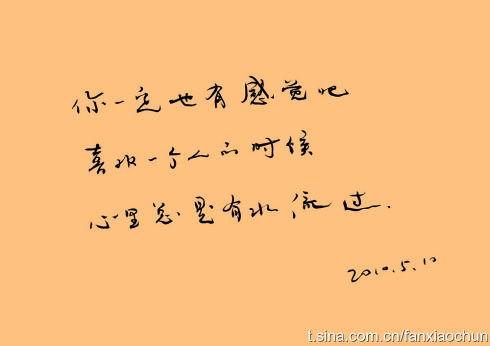 你一定也有感觉吧
喜欢一个人的时候
心里总是有水流过.
2010.5.10
t.sina.com.cn/fanxiaochun